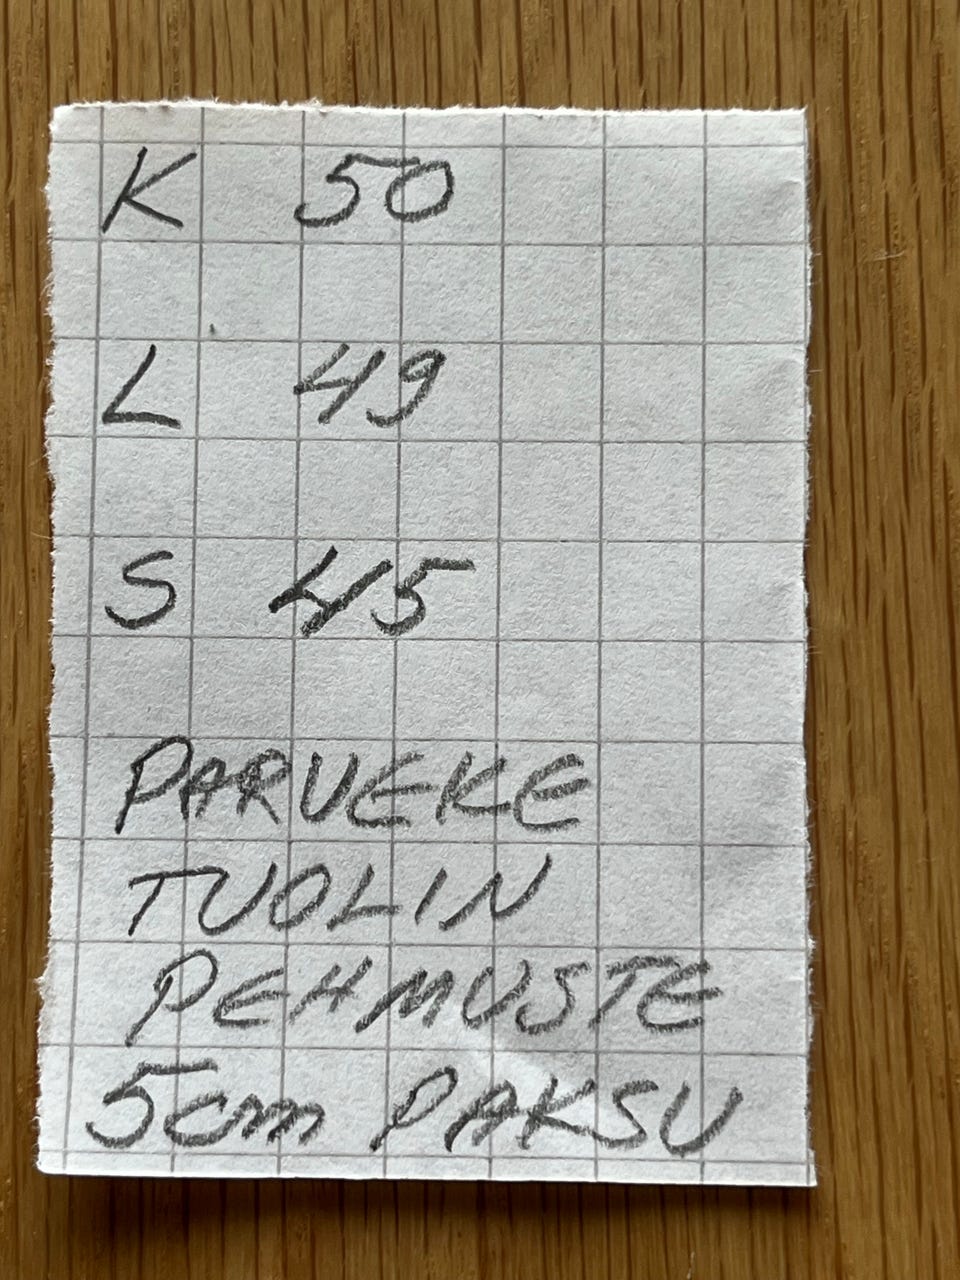 K 50
L 49
S 45
PARVEKE
TUOLIN
PEHMUSTE
5cm PAKSU